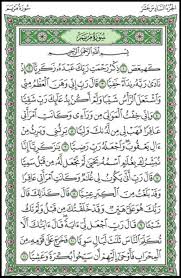 الجزء السادس عشر سورة مريم
سورة مريم
بسم الله الرحمن الرحيم
كهيعص ۝ ذكر رحمت ربك عبده زكريا ۝ إذ
نادى ربه نداء خفيا ۝ قال رب إني وهن العظم مني
واشتعل الرأس شيبا ولم أكن بدعائك رب شقيا ۝
وإني خفت الموالي من وراءي وكانت امرأتي
عاقرا فهب لي من لدنك وليا ۝ يرثني ويرث من ءال
يعقوب واجعله رب رضيا ۝ يزكريا إنا نبشرك
بغلم اسمه يحيى لم نجعل له من قبل سميا ۝
قال رب أنى يكون لي غلم وكانت امرأتي عاقرا
وقد بلغت من الكبر عتيا ۝ قال كذلك قال
ربك هو علي هين وقد خلقتك من قبل ولم تك
شيئا ۝ قال رب اجعل لي ءاية قال ءايتك ألا
تكلم الناس ثلث ليال سويا ۝ فخرج على قومه من
المحراب فأوحى إليهم أن سبحوا بكرة وعشيا ۝